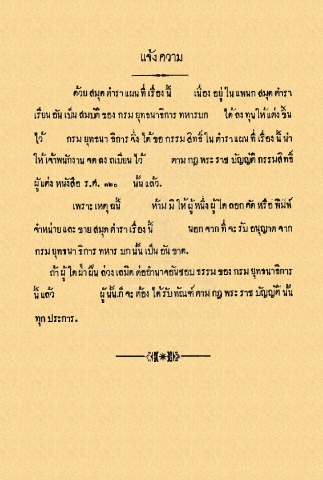 แจ้ง ความ
ด้วย สมุด ตำรา แผน ที่ เรื่อง นี้ เนื่อง อยู่ ใน แพนก สมุด ตำรา
เรียน อัน เป็น สมบัติ ของ กรม ยุทธนาธิการ ทหารบก ได้ ลง ทุน ให้ แต่ง ขึ้น
ไว้ กรม ยุทธนา ธิการ จึ่ง ได้ ขอ กรรม สิทธิ์ ใน ตำรา แผน ที่ เรื่อง นี้ นำ
ให้ เจ้าพนักงาน จด ลง ทเบียน ไว้ ตาม กฎ พระ ราช บัญญัติ กรรมสิทธิ์
ผู้แต่ง หนังสือ ร.ศ. ๑๒๐ นั้น แล้ว.
เพราะ เหตุ ฉนี้ ห้าม มิ ให้ ผู้ หนึ่ง ผู้ ใด ลอก คัด หรือ พิมพ์
จำหน่าย และ ขาย สมุด ตำรา เรื่อง นี้ นอก จาก ที่ จะ รับ อนุญาต จาก
กรม ยุทธนา ธิการ ทหาร บก นั้น เป็น อัน ขาด.
ถ้า ผู้ ใด ฝ่า ฝืน ล่วง เลมิด ต่ออำนาจอันชอบ ธรรม ของ กรม ยุทธนาธิการ
นี้ แล้ว ผู้ นั้น ก็ จะ ต้อง ได้ รับ ทัณฑ์ ตาม กฎ พระ ราช บัญญัติ นั้น
ทุก ประการ.